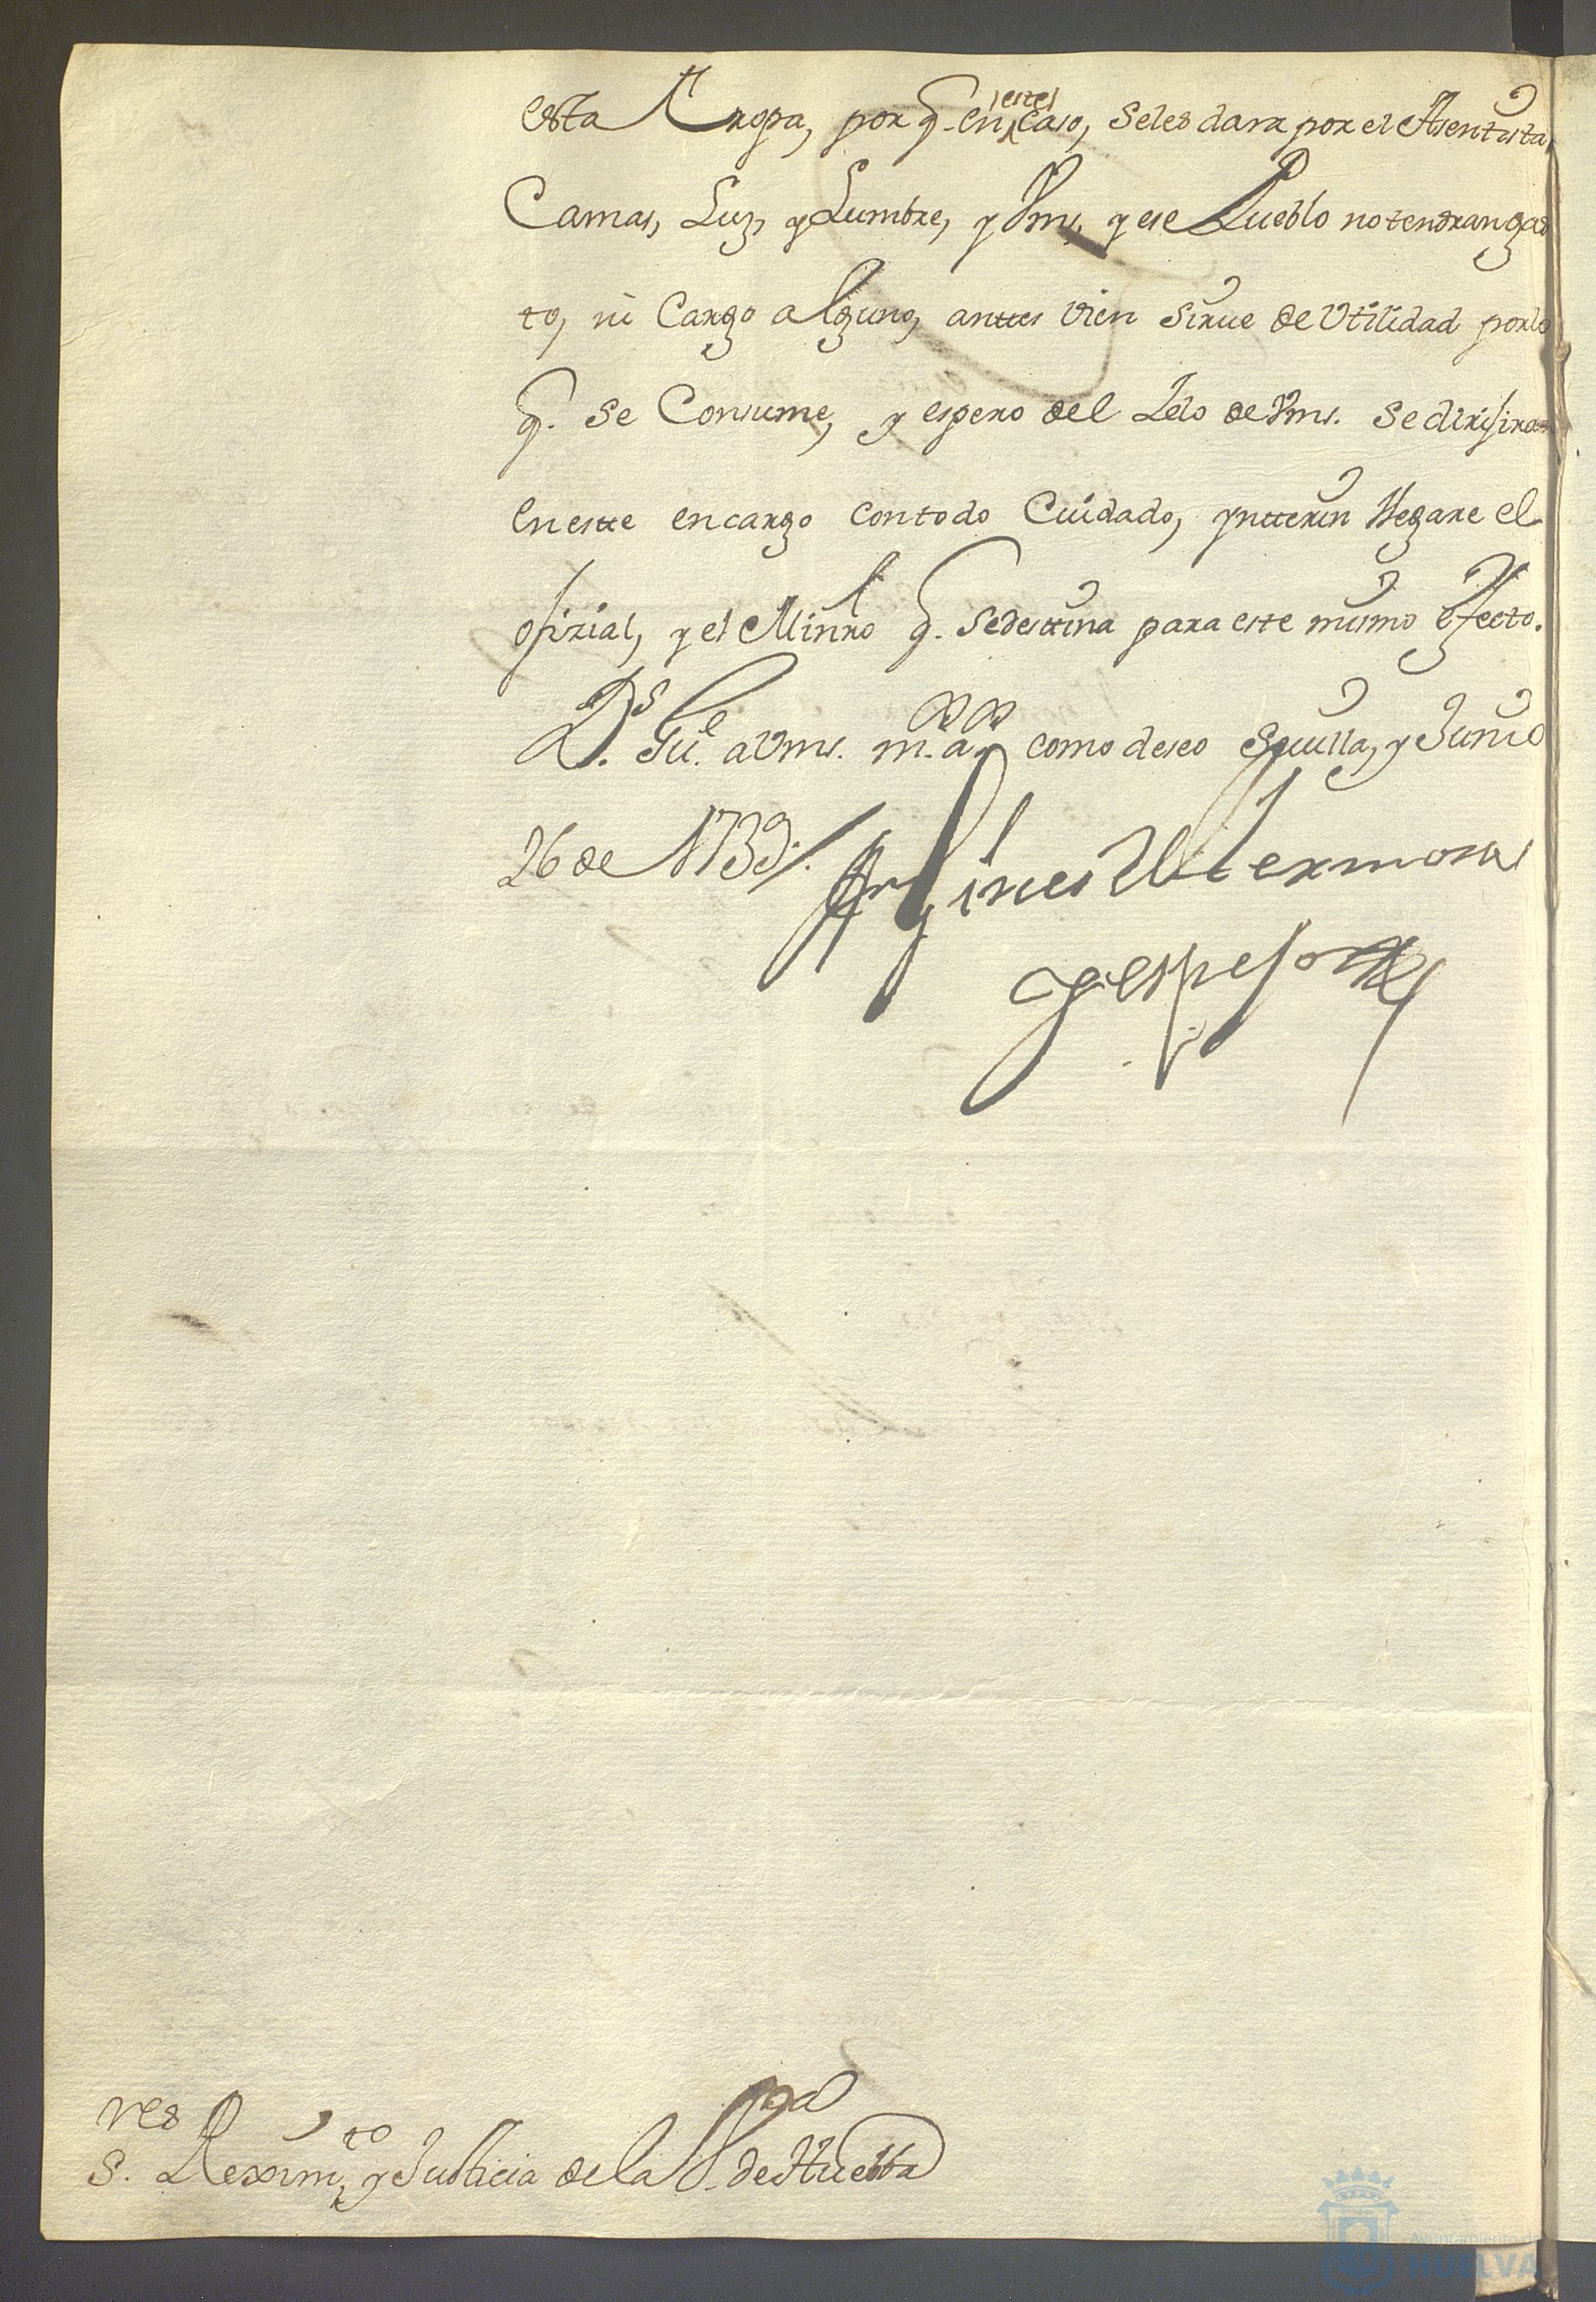 esta tropa, por q. en este caso, seles dara por el Asentista
Camas, Luz, y Lumbre, y Vms. y ese Pueblo no tendran gas
to, ni Cargo alguno, anttes vien sirue de Vtilidad por lo
q. se Consume, y espero del Zelo de Vms. se dirijira
en estte encargo con todo Cuidado, yntterin llegare el
ofizial, y el Minro q. se desttina para este mismo efecto.
Ds. Gue. a Vms. ms. as. como deseo Seuilla, y Junio
26 de 1739.
Gines de Hermosa
y espejo
res
S. Reximto. y Justicia de la Va. de Huelba
Ayuntamiento de
HUELVA